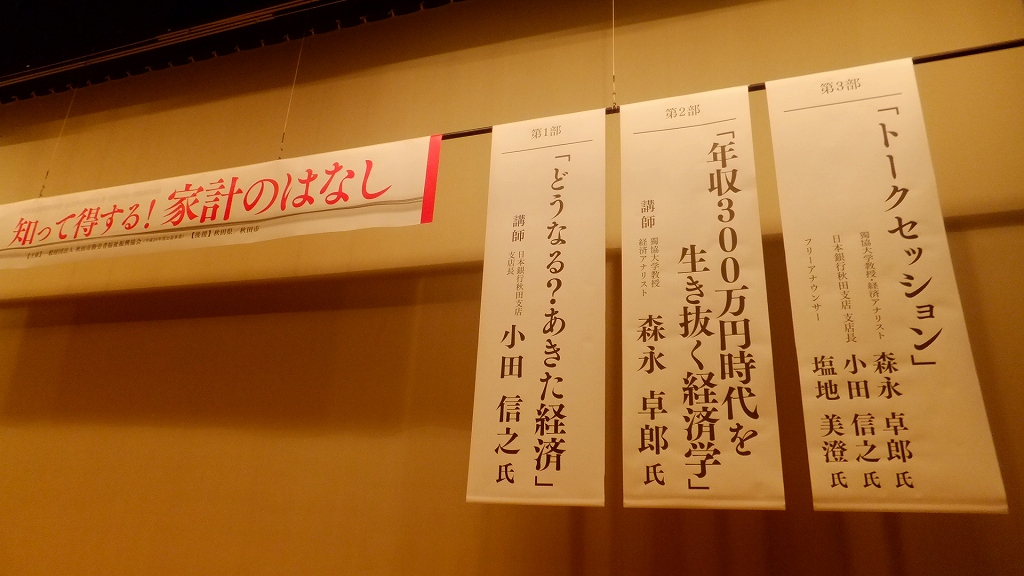 知って得する！家計のはなし
【後援】秋田県・秋田市
第1部
「どうなる？あきた経済」
講師
日本銀行秋田支店
支店長
小田 信之 氏
第2部
「年収300万円時代を
生き抜く経済学」
講師
獨協大学教授
経済アナリスト
森永 卓郎 氏
第3部
「トークセッション」
獨協大学教授・経済アナリスト 森永 卓郎 氏
日本銀行秋田支店 支店長 小田 信之 氏
フリーアナウンサー 塩地 美澄 氏